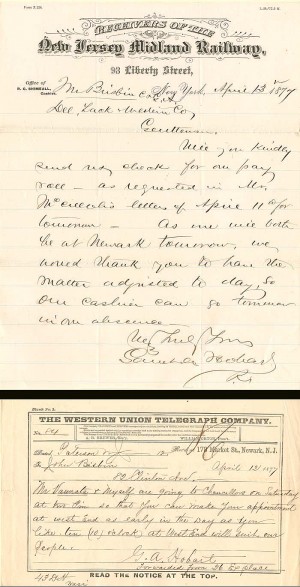 RECEIVERS OF THE
New Jersey Midland Railway,
93 Liberty Street,
Office of
New York, April 13th 1877
Mr Brisbin
Del. Lack & Western Co,
Gentlemen.
Will you kindly
send us check for our pay
roll — as requested in Mr.
McCulloh's letter of April 11th for
tomorrow — As we will both
be at Newark tomorrow, we
would thank you to have the
matter adjusted to day, so
our cashier can go tomorrow
in our absence —
Very Truly Yours
THE WESTERN UNION TELEGRAPH COMPANY.
176 Market St., Newark, N. J.
April 13 1877
To John Brisbin
& Myself are going to Chancellors on Saturday
at two P.m so that you can make your appointment
at west End as early in the day as you
like. ten (10) o'clock, at West End will suit our
People.
G. A. Hobart
READ THE NOTICE AT THE TOP.